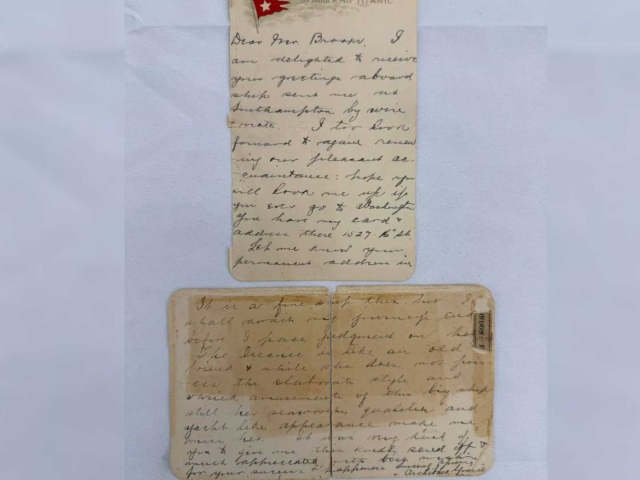 TITANIC
Dear Mr. I
am delighted to receive
your greetings aboard
ship sent me at
Southampton by wire
note. I too look
forward to again renew
ing our pleasant ac
quaintance: hope you
will look me up if
you ever go to Washington
You have my card &
address there 1527 16th St.
Let me know your
permanent address in
It is a fine ship but I
shall await my journey's end
before I pass judgment on her
The Oceanic is like an old
friend & while she does not poss
ess the elaborate style and
varied amusements of this big ship
still her seaworthy qualities and
yacht like appearance make me
miss her. It was very kind of
you to give me this kindly send off &
much appreciated with best wishes
for your success & happiness
Archibald Gracie